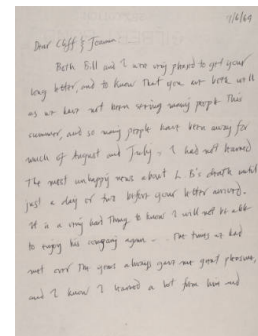 7/6/69
Dear Cliff & Joanna
Both Bill and I were very pleased to get your
long letter, and to know that you are both well
as we have not been seeing many people this
summer, and so many people have been away for
much of August and July - I had not learned
the most unhappy news about L. B's death until
just a day or two before your letter arrived.
It is a very bad thing to know I will not be able
to enjoy his company again - The times we had
met over the years always gave me great pleasure,
and I know I learned a lot from him and